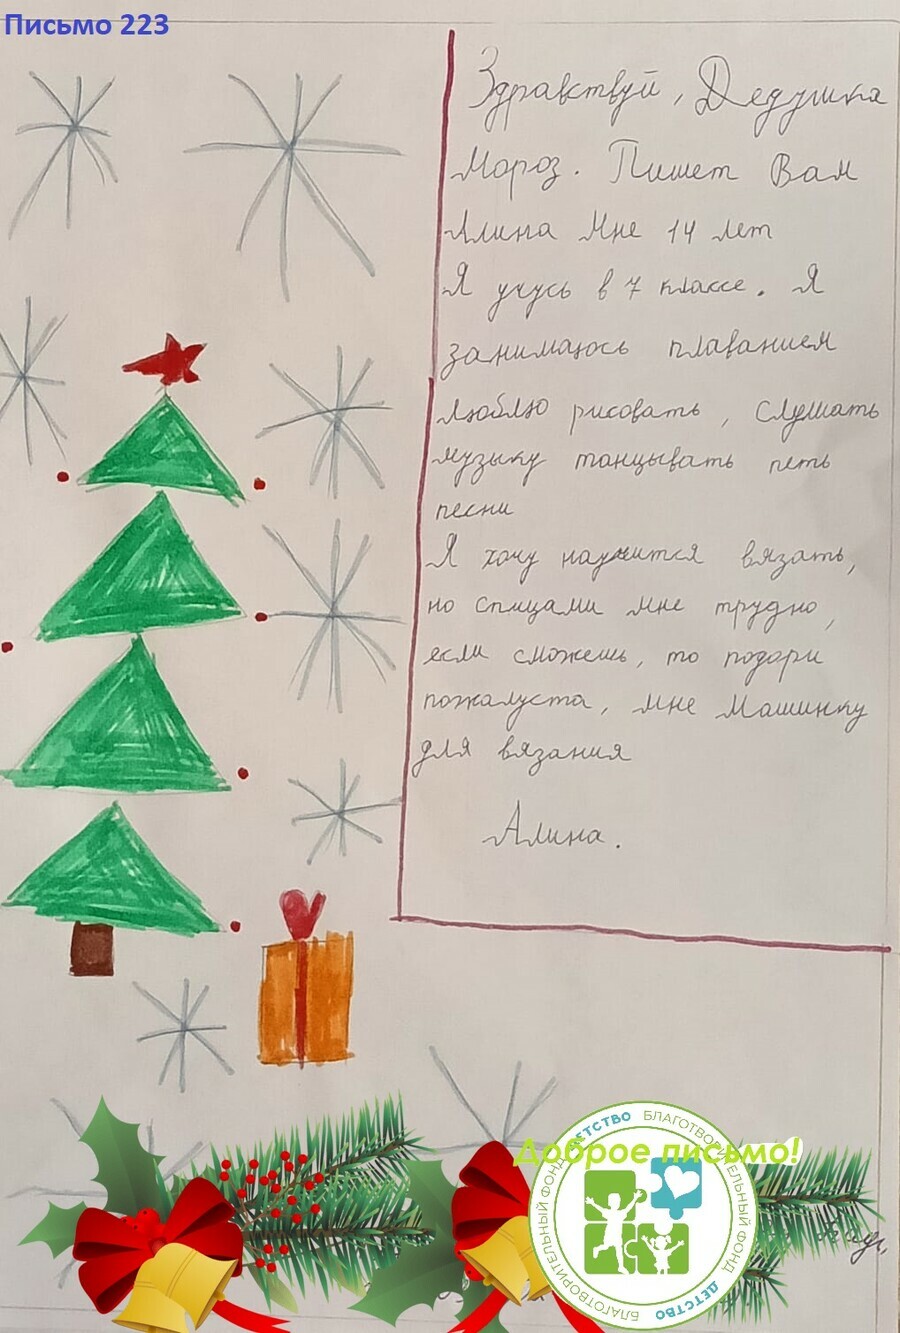 Письмо 223
Здравствуй, Дедушка
Мороз. Пишет Вам
Алина Мне 14 лет
Я учусь в 7 классе. Я
занимаюсь плаванием
люблю рисовать, слушать
музыку танцывать петь
песни
Я хочу научится вязать,
но спицами мне трудно,
если сможешь, то подари
пожалуста, мне Машинку
для вязания
Алина.
Доброе письмо!
БЛАГОТВОРИТЕЛЬНЫЙ ФОНД ДЕТСТВО
БЛАГОТВОРИТЕЛЬНЫЙ ФОНД ДЕТСТВО